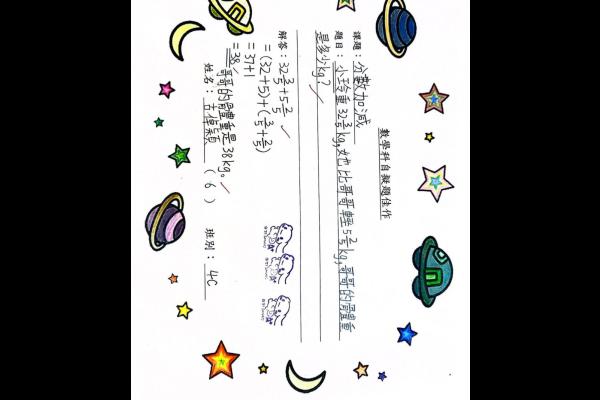 數學科自擬題佳作
課題：分數加減
題目：小玲重32 3/5 kg,她比哥哥輕5 2/5 kg,哥哥的體重
是多少kg？
解答：32 3/5 + 5 2/5
= (32+5)+(3/5+2/5)
= 37+1
= 38
哥哥的體重是38kg。
姓名：古倬穎 (6) 班別：4C